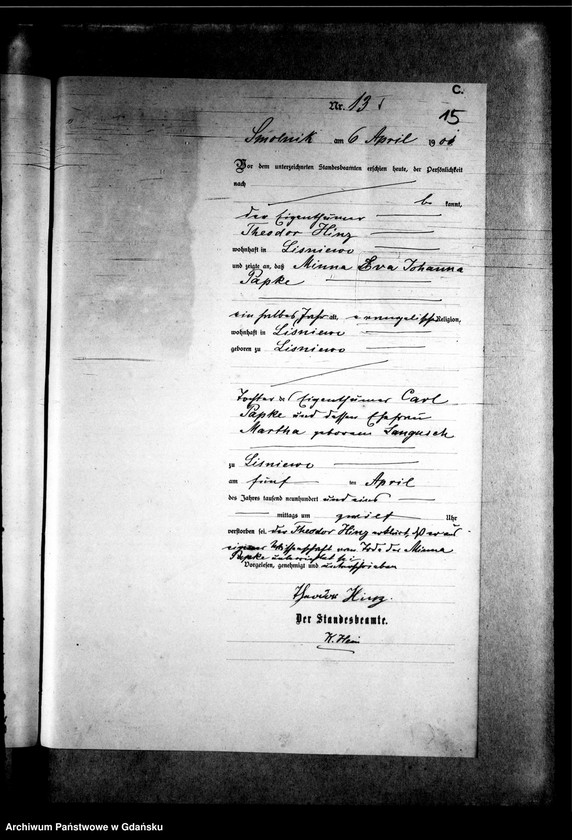 C.
Nr. 13
15
Smolnik am 6 April 1901
Vor dem unterzeichneten Standesbeamten erschien heute, der Persönlichkeit
nach
be kannt,
der Eigenthümer
Theodor Hinz
wohnhaft in Lisniewo
und zeigte an, daß Minna Eva Johanna
Papke
ein halbes Jahr alt, evangelischer Religion,
wohnhaft in Lisniewo
geboren zu Lisniewo
Tochter des Eigenthümer Carl
Papke und dessen Ehefrau
Martha geborene
zu Lisniewo
am fünf ten April
des Jahres tausend neunhundert und eins
mittags um zwölf Uhr
verstorben sei. Der Theodor Hinz erklärt, daß er aus
eigener Wissenschaft vom Tode der Minna
Papke unterrichtet sei
Vorgelesen, genehmigt und unterschrieben
Theodor Hinz.
Der Standesbeamte.
Archiwum Państwowe w Gdańsku